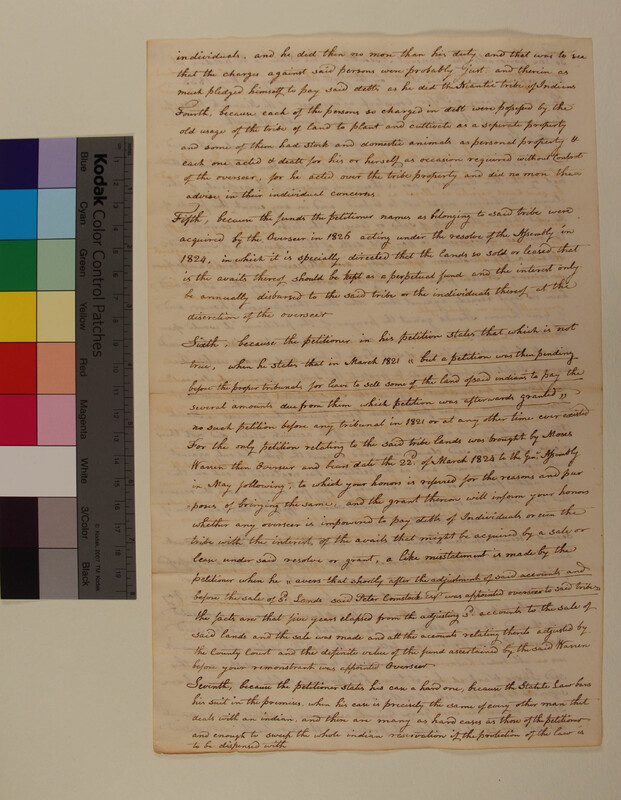 individuals, and he did then no more than his duty and that was to see
that the charges against said persons were probably just, and therein as
much pledged himself to pay said debts as he did the Niantic tribe of Indians
Fourth, because each of the persons so charged in debt were possessed by the
old usage of the tribe of land to plant and cultivate as a seperate property
and some of them had stock and domestic animals as personal property &
each one acted & dealt for his or herself as occasion required without Controul
of the overseer, for he acted over the tribe property and did no more than
advise in their individual concerns
Fifth, because the funds the petitioner names as belonging to said tribe were
acquired by the Overseer in 1826 acting under the resolve of the Assembly in
1824, in which it is specially directed that the lands so sold or leased that
is the avails thereof should be kept as a perpetual fund and the interest only
be annually disbursed to the said tribe or the individuals thereof at the
discretion of the overseer
Sixth, because the petitioner in his petition states that which is not
true, when he states that in March 1821 " but a petition was then pending
before the proper tribunals for leave to sell some of the land of said indians to pay the
several amounts due from them which petition was afterwards granted "
no such petition before any tribunal in 1821 or at any other time ever existed
For the only petition relating to the said tribe lands was brought by Moses
Warren then Overseer and bears date the 22d of March 1824 to the Genl Assembly
in May following, to which your honors is refered for the reasons and pur
poses of bringing the same, and the grant thereon will inform your honors
whether any overseer is impowered to pay debts of Individuals or even the
tribe with the interest of the avails that might be acquired by a sale or
lease under said resolve or grant, a like misstatement is made by the
petitioner when he " avers that shortly after the adjustment of said accounts and
before the sale of sd. Lands said Peter Comstock Esqr was appointed overseer to said tribe "
The facts are that five years elapsed from the adjusting sd. accounts to the sale of
said lands and the sale was made and all the accounts relating thereto adjusted by
the County Court and the definite value of the fund ascertained by the said Warren
before your remonstrant was appointed Overseer
Seventh, because the petitioner states his case a hard one, because the Statute Law bars
his suit in the premises, when his case is precisely the same of every other man that
deals with an indian, and there are many as hard cases as those of the petitioner
and enough to sweep the whole indian reservation if the protection of the law is
to be dispensed with
Kodak Color Control Patches
Blue
Cyan
Green
Yellow
Red
Magenta
White
3/Color
Black